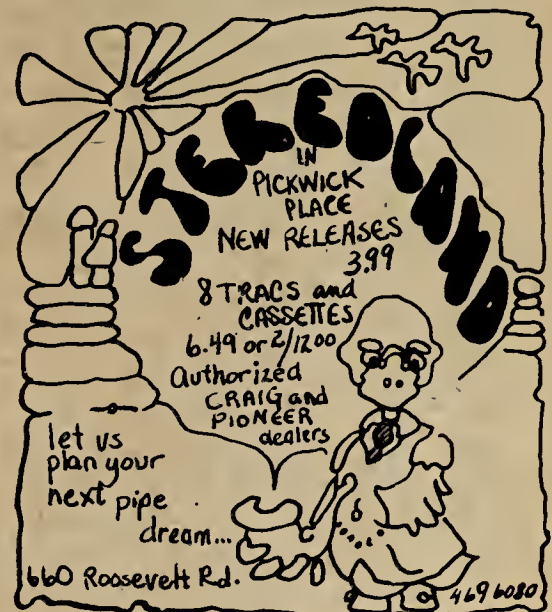 STEREOLAND
IN
PICKWICK
PLACE
NEW RELEASES
3.99
8 TRACS and
CASSETTES
6.49 or 2/12 00
Authorized
CRAIG and
PIONEER
dealers
let us
plan your
next pipe
dream...
660 Roosevelt Rd.
469 6080